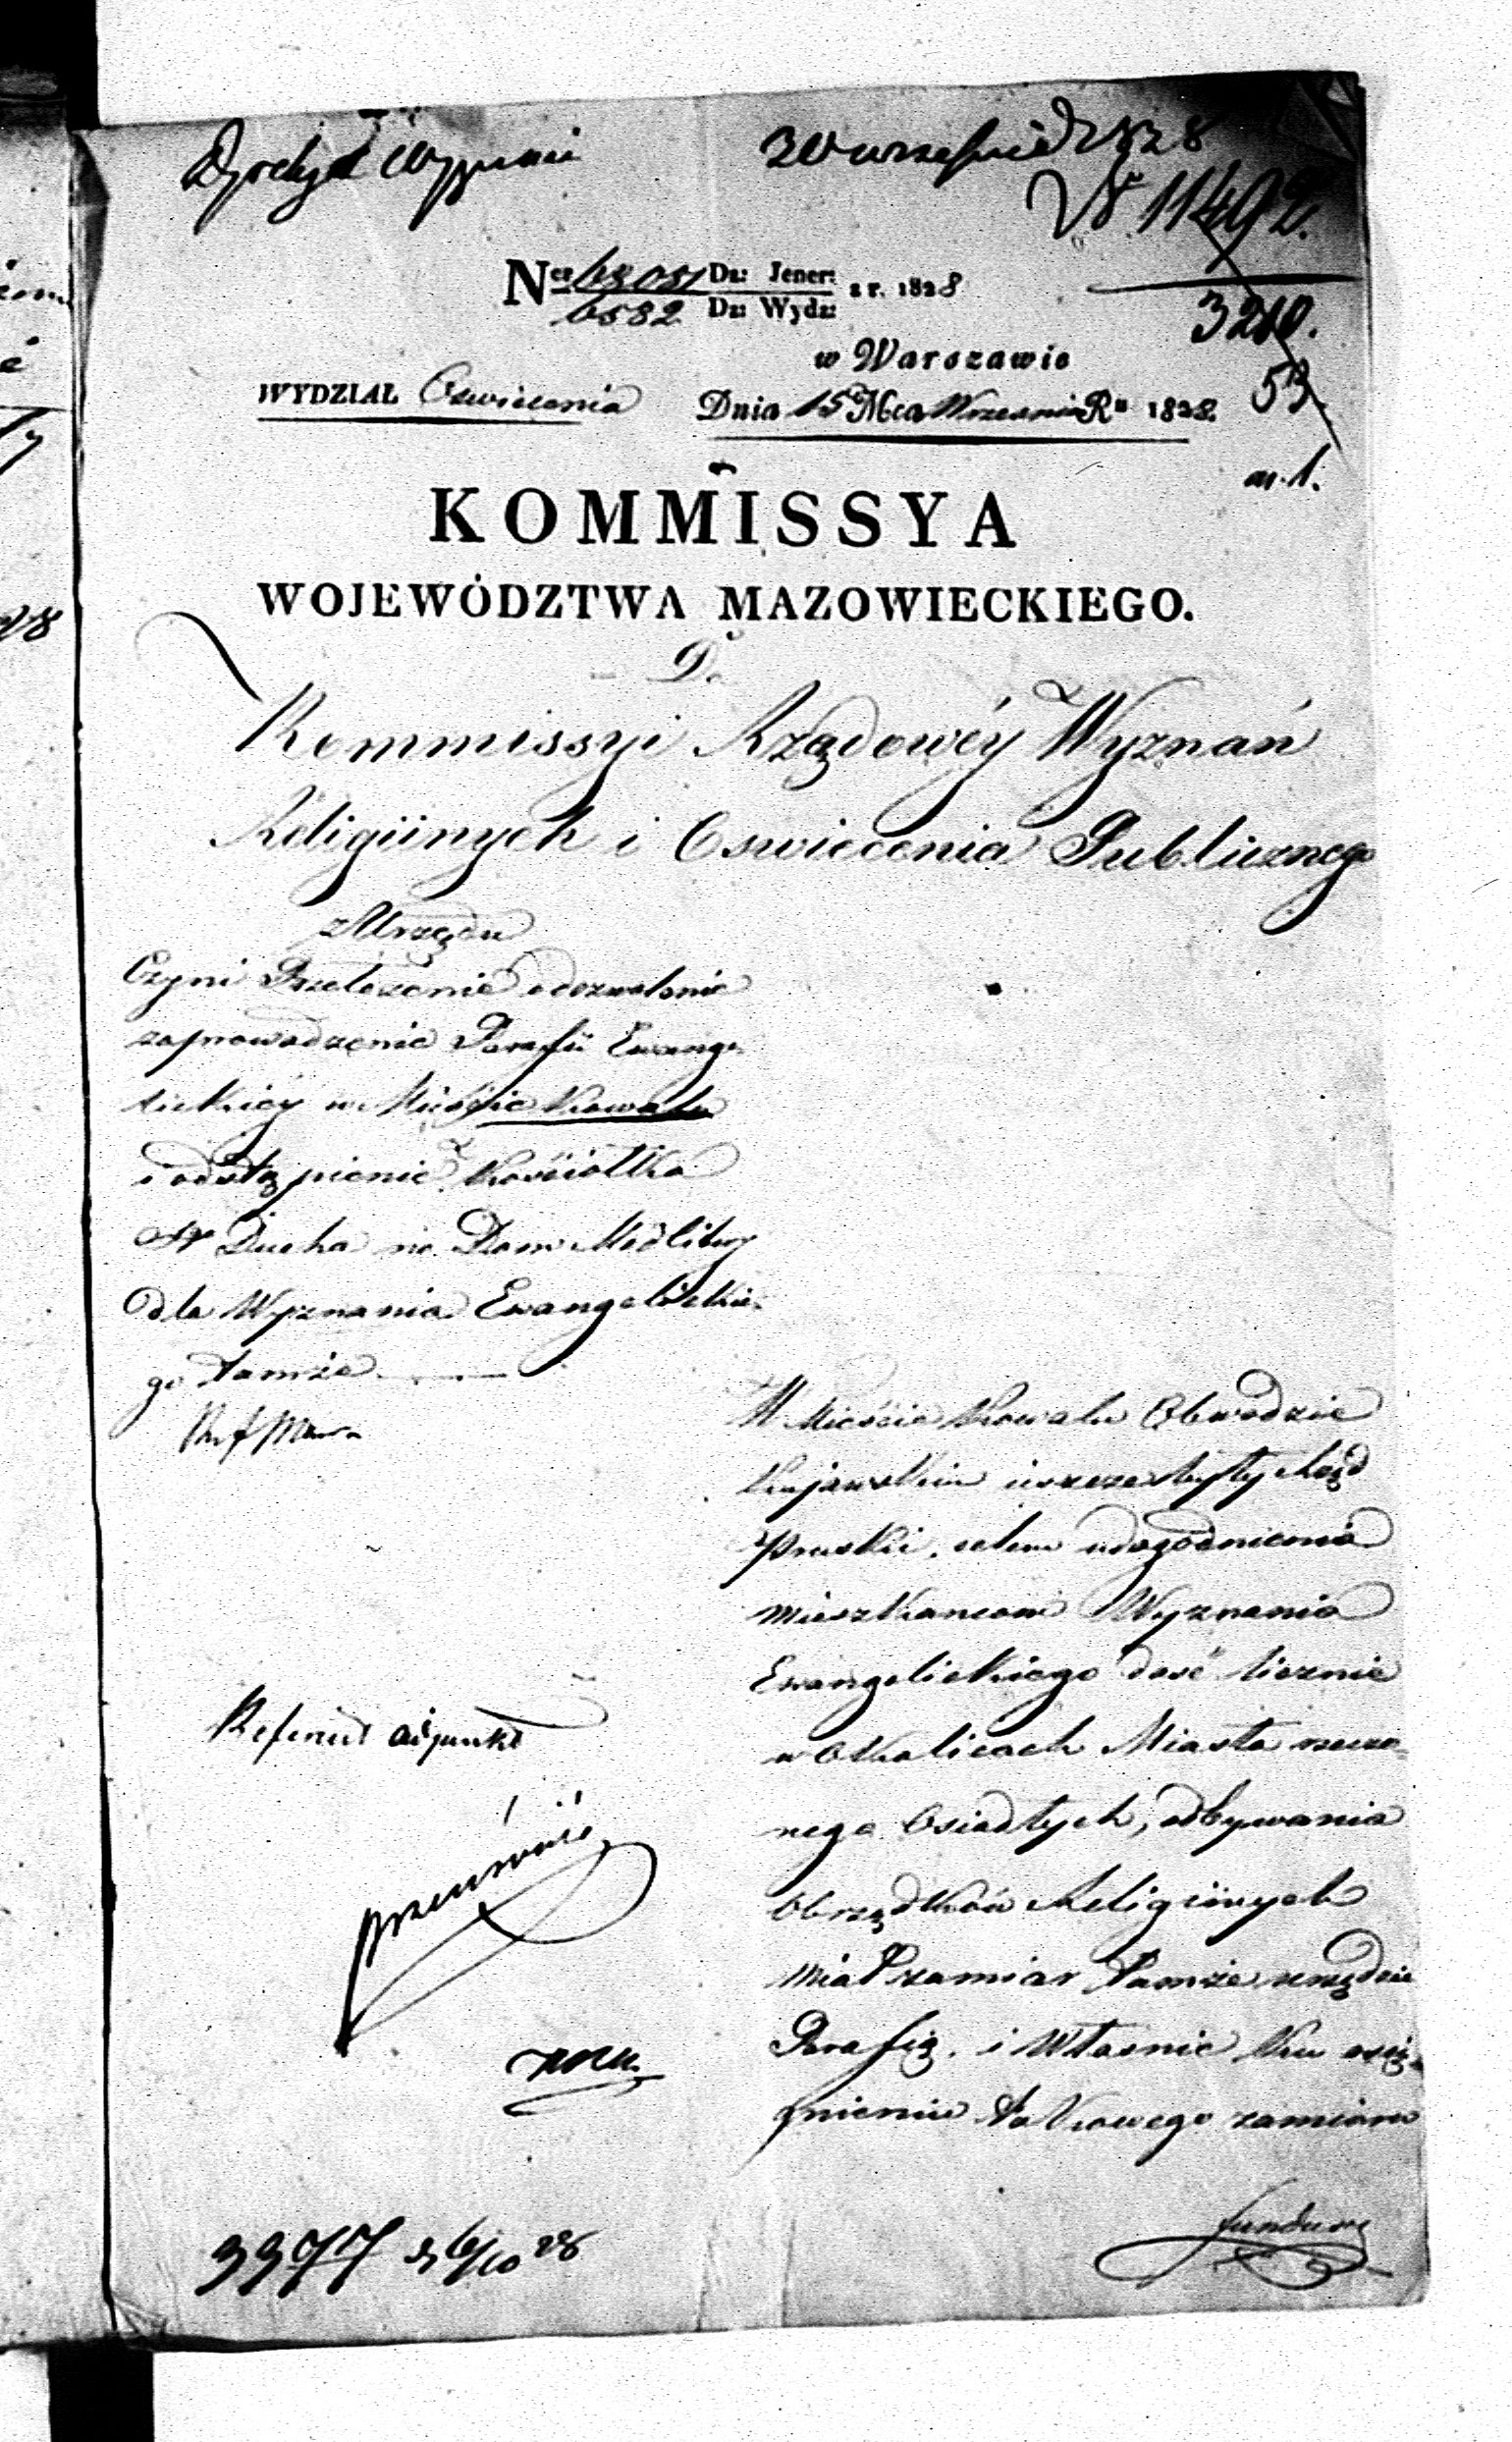 Wyznań
30 września 1828
N 11492.
Nes 68081 Dz: Jener: z r. 1828
6582 Dz: Wydz:
3210.
53
w Warszawie
WYDZIAŁ Oswiecenia Dnia 15 Mca Wrzesnia Ru 1828.
KOMMISSYA
WOJEWÓDZTWA MAZOWIECKIEGO.
Do
Kommissyi Rządowéy Wyznań
Religiinych i Oswiecenia Publicznego
z Urzędu
Czyni Przełożenie o dozwolenie
zaprowadzenia Parafii Ewange-
lickiéy w Mieście Kowalu
i odstąpienie Kościołka
Sgo Ducha na Dom Modlitwy
dla Wyznania Ewangelickie-
go tamże
W Mieście Kowalu Obwodzie
Kujawskim uszczęśliwy Rząd
Pruski, celem udogodnienia
mieszkancom Wyznania
Ewangelickiego dosć licznie
w Okolicach Miasta rzeczo-
nego Osiadłych, odbywania
Obrządków Religiinych
miał zamiar tamże urządzić
Parafią, i Własnie ku osią-
gnieniu takowego zamiaru
Referent adjunkt
fundusz
3377 d 6/10 28